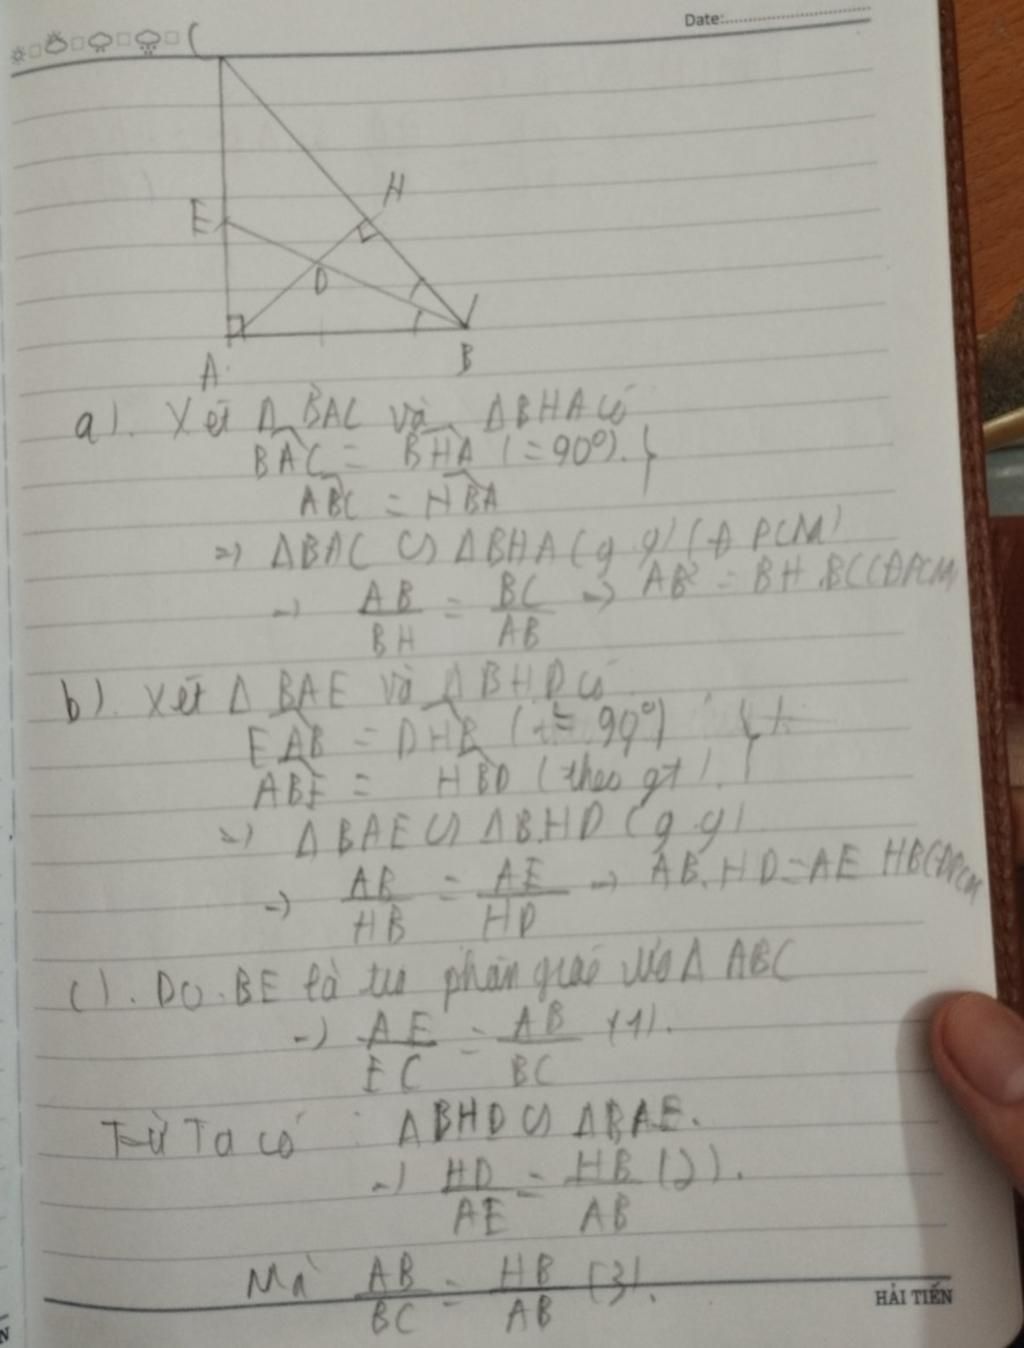 Date:
C
H
E
D
A
B
a). Xét Δ BAC và ΔBHA có
BAC = BHA (=90°).
ABC = HBA
=) ΔBAC ∽ ΔBHA (g.g) (ĐPCM)
=) AB/BH = BC/AB → AB² = BH.BC (ĐPCM)
b). Xét Δ BAE và ΔBHD có
EAB = DHB (= 90°)
ABE = HBD (theo gt).
=) ΔBAE ∽ ΔBHD (g.g)
=) AB/HB = AE/HD → AB.HD=AE HB (ĐPCM
c). Do BE là tia phân giác của Δ ABC
=) AE/EC = AB/BC (1).
Từ Ta có : ΔBHD ∽ ΔBAE.
=) HD/AE = HB/AB (2).
Mà AB/BC = HB/AB (3).
HẢI TIẾN